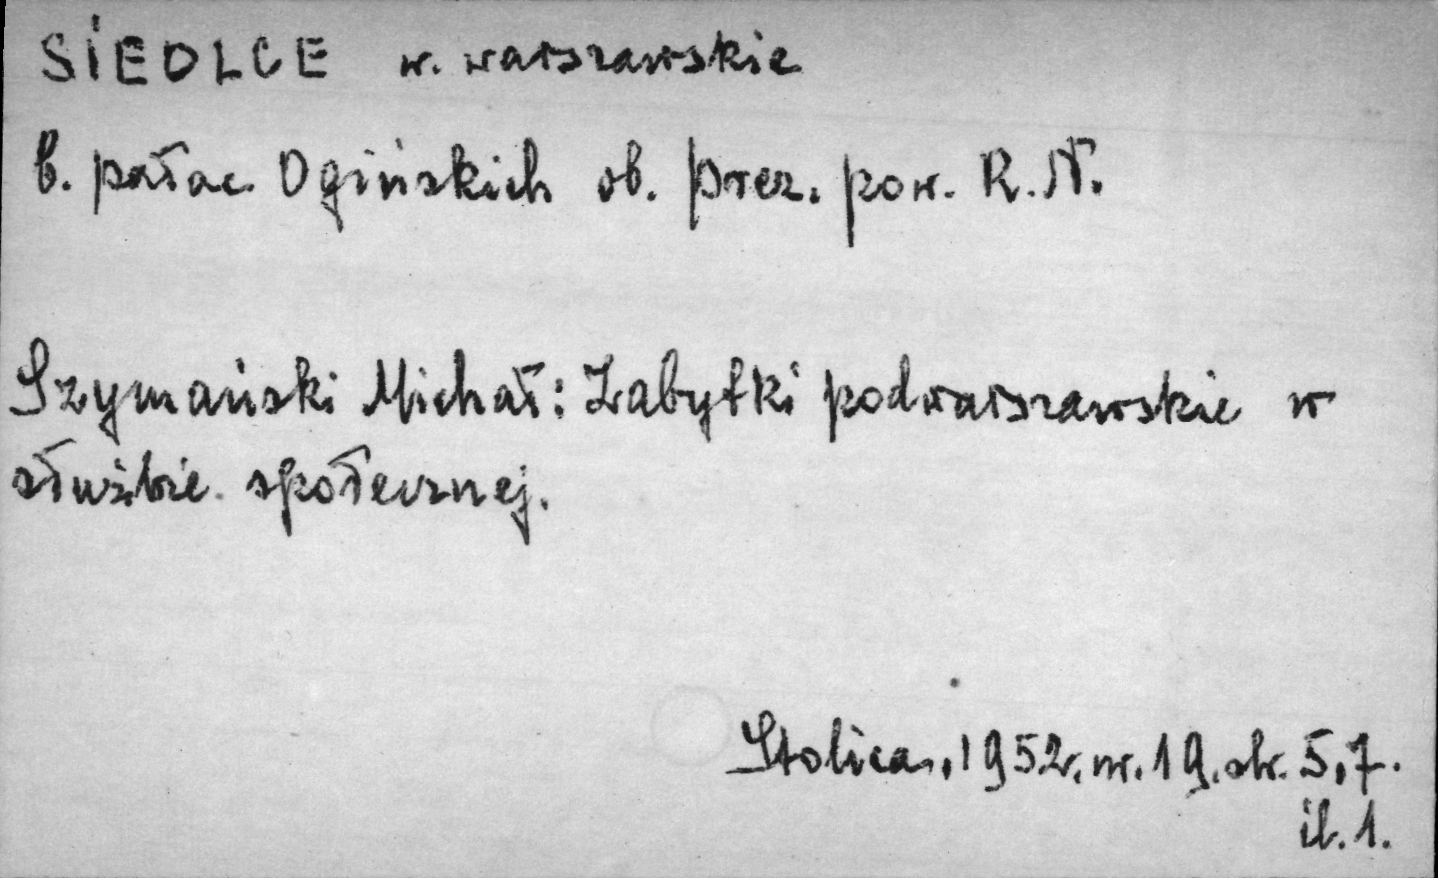 SIEDLCE w. warszawskie
b. pałac Ogińskich ob. Prez. pow. R.N.
Szymański Michał: Zabytki podwarszawskie w
służbie społecznej.
Stolica, 1952r. nr. 19. str. 5,7.
il. 1.